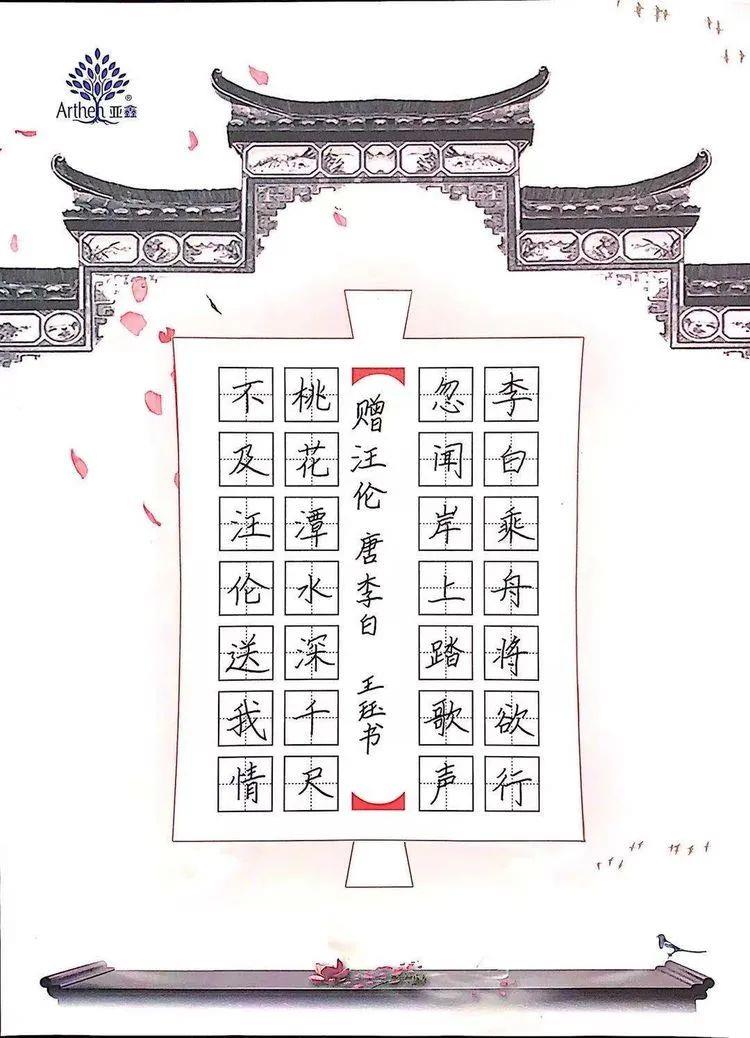 Arthen®亚鑫
李白乘舟将欲行
忽闻岸上踏歌声
赠汪伦 唐李白 王珏书
桃花潭水深千尺
不及汪伦送我情